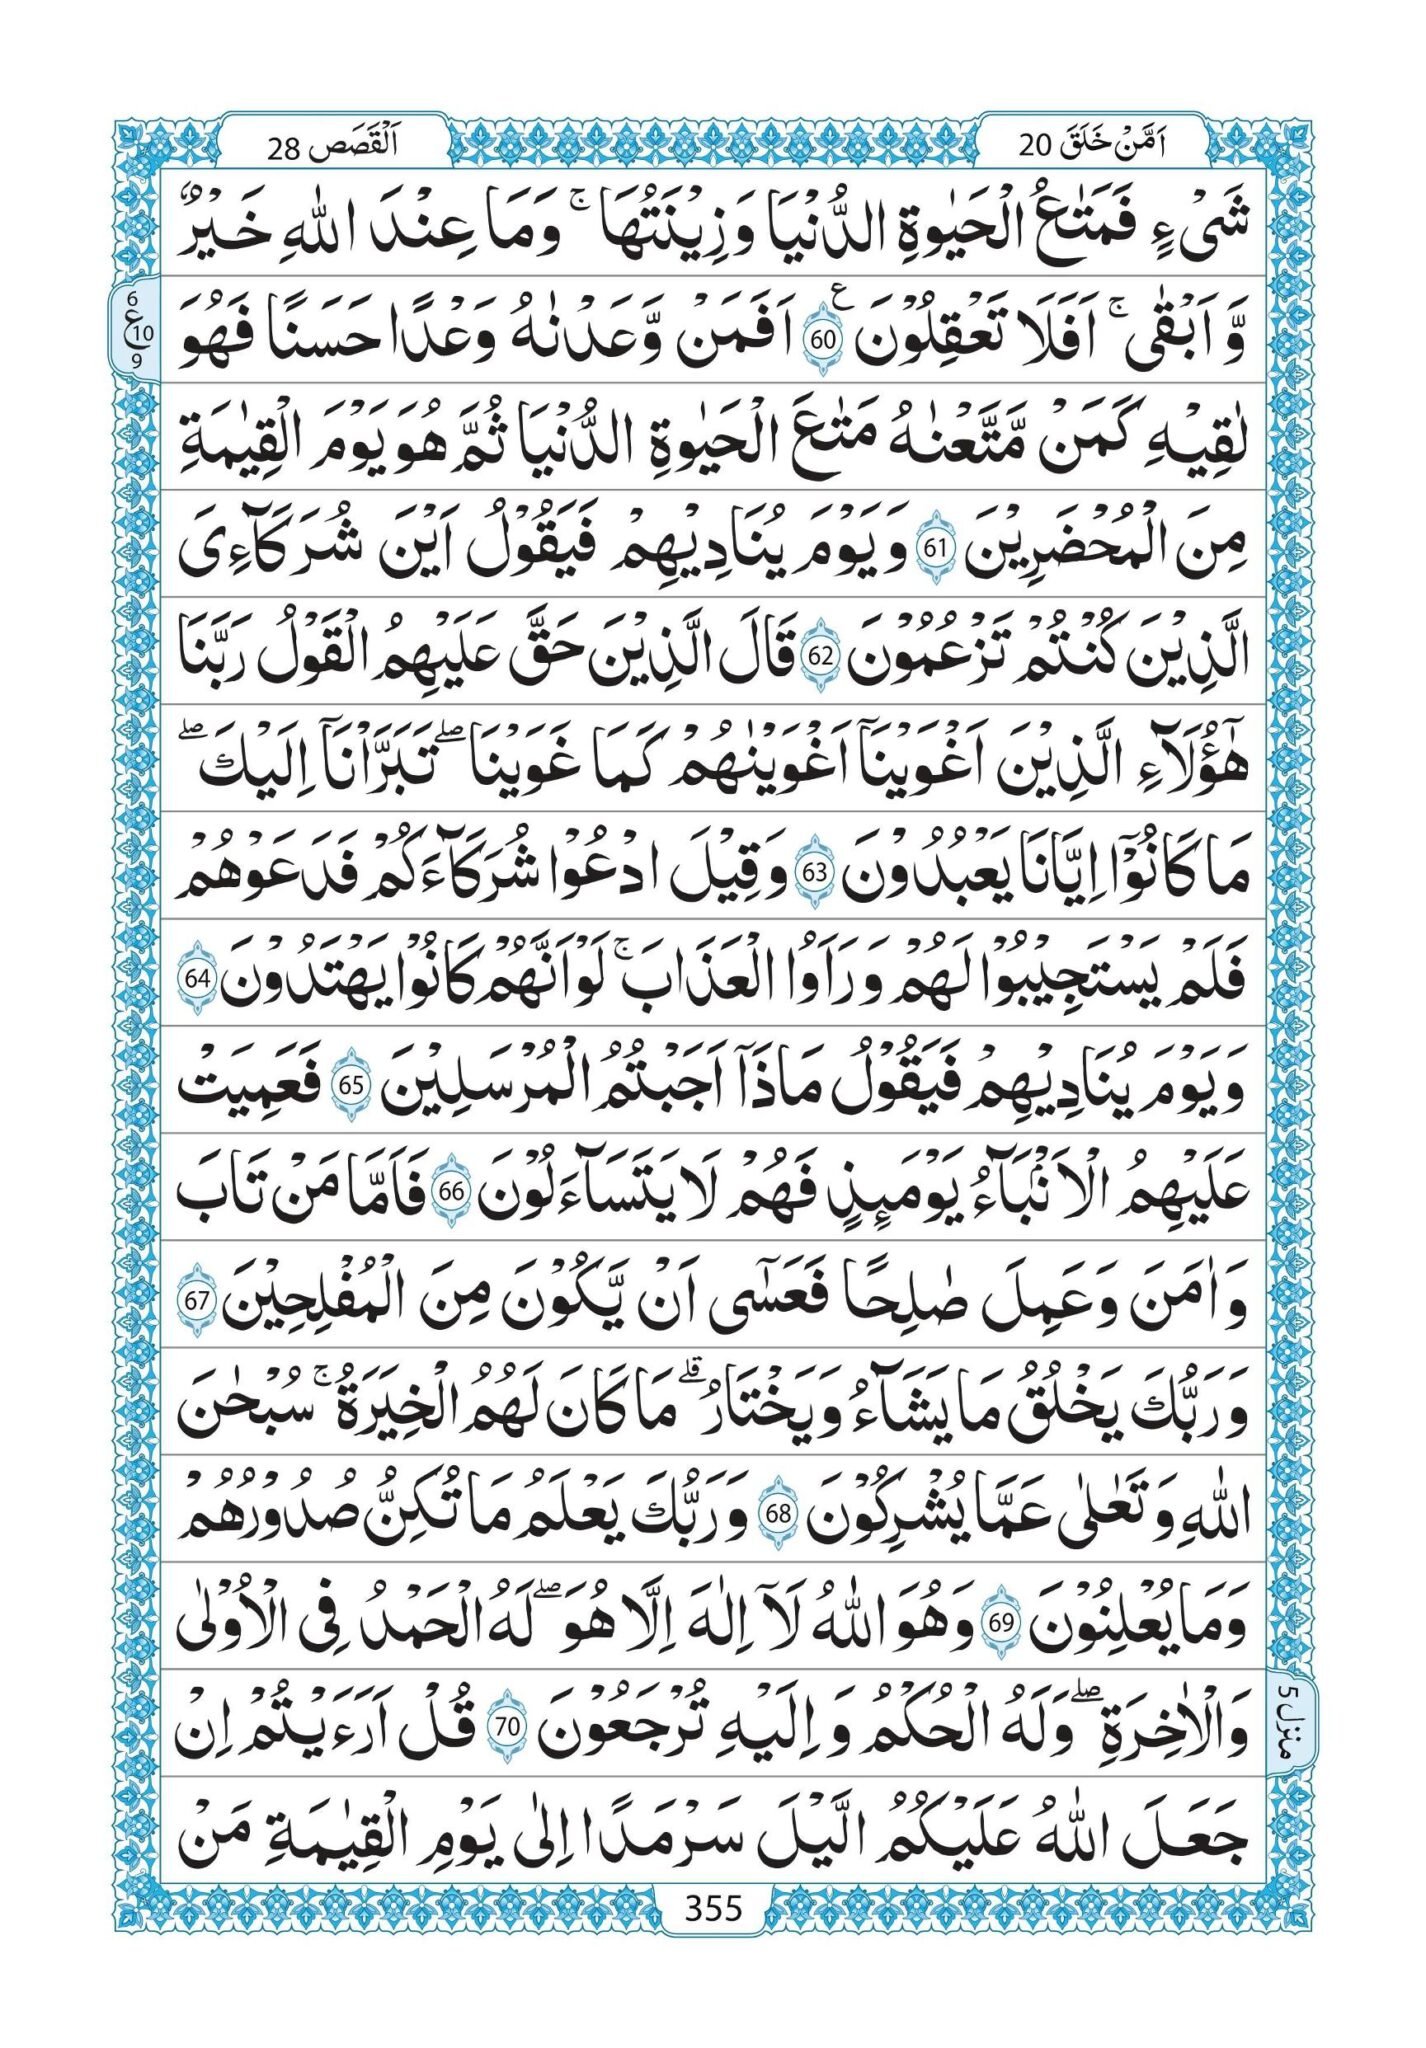 اَمَّنْ خَلَقَ 20
اَلْقَصَص 28
شَیْءٍ فَمَتَاعُ الْحَیٰوةِ الدُّنْیَا وَ زِیْنَتُهَا ۚ وَ مَا عِنْدَ اللّٰهِ خَیْرٌ
وَّ اَبْقٰی ۚ اَفَلَا تَعْقِلُوْنَ ۧ 60 اَفَمَنْ وَّعَدْنٰهُ وَعْدًا حَسَنًا فَهُوَ
6
ع 10
9
لٰقِیْهِ كَمَنْ مَّتَّعْنٰهُ مَتَاعَ الْحَیٰوةِ الدُّنْیَا ثُمَّ هُوَ یَوْمَ الْقِیٰمَةِ
مِنَ الْمُحْضَرِیْنَ 61 وَ یَوْمَ یُنَادِیْهِمْ فَیَقُوْلُ اَیْنَ شُرَكَآءِیَ
الَّذِیْنَ كُنْتُمْ تَزْعُمُوْنَ 62 قَالَ الَّذِیْنَ حَقَّ عَلَیْهِمُ الْقَوْلُ رَبَّنَا
هٰۤؤُلَآءِ الَّذِیْنَ اَغْوَیْنَاۤ اَغْوَیْنٰهُمْ كَمَا غَوَیْنَا ۖ تَبَرَّاْنَاۤ اِلَیْكَ ۖ
مَا كَانُوْۤا اِیَّانَا یَعْبُدُوْنَ 63 وَ قِیْلَ ادْعُوْا شُرَكَآءَكُمْ فَدَعَوْهُمْ
فَلَمْ یَسْتَجِیْبُوْا لَهُمْ وَ رَاَوُا الْعَذَابَ ۚ لَوْ اَنَّهُمْ كَانُوْا یَهْتَدُوْنَ 64
وَ یَوْمَ یُنَادِیْهِمْ فَیَقُوْلُ مَاذَاۤ اَجَبْتُمُ الْمُرْسَلِیْنَ 65 فَعَمِیَتْ
عَلَیْهِمُ الْاَنْۢبَآءُ یَوْمَىِٕذٍ فَهُمْ لَا یَتَسَآءَلُوْنَ 66 فَاَمَّا مَنْ تَابَ
وَ اٰمَنَ وَ عَمِلَ صٰلِحًا فَعَسٰۤی اَنْ یَّكُوْنَ مِنَ الْمُفْلِحِیْنَ 67
وَ رَبُّكَ یَخْلُقُ مَا یَشَآءُ وَ یَخْتَارُ ۗ مَا كَانَ لَهُمُ الْخِیَرَةُ ۚ سُبْحٰنَ
اللّٰهِ وَ تَعٰلٰی عَمَّا یُشْرِكُوْنَ 68 وَ رَبُّكَ یَعْلَمُ مَا تُكِنُّ صُدُوْرُهُمْ
وَ مَا یُعْلِنُوْنَ 69 وَ هُوَ اللّٰهُ لَاۤ اِلٰهَ اِلَّا هُوَ ۖ لَهُ الْحَمْدُ فِی الْاُوْلٰی
وَ الْاٰخِرَةِ ۖ وَ لَهُ الْحُكْمُ وَ اِلَیْهِ تُرْجَعُوْنَ 70 قُلْ اَرَءَیْتُمْ اِنْ
منزل 5
جَعَلَ اللّٰهُ عَلَیْكُمُ الَّیْلَ سَرْمَدًا اِلٰی یَوْمِ الْقِیٰمَةِ مَنْ
355